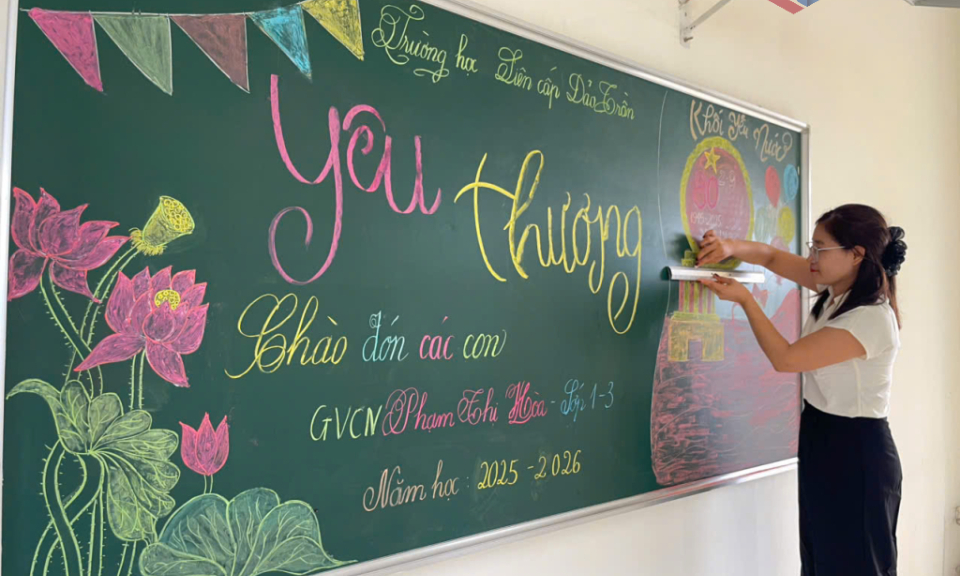 Trường học Liên cấp Đảo Trần
Khối Yêu Nước
Yêu
thương
Chào đón các con
GVCN Phạm Thị Hòa - Lớp 1-3
Năm học: 2025-2026
80